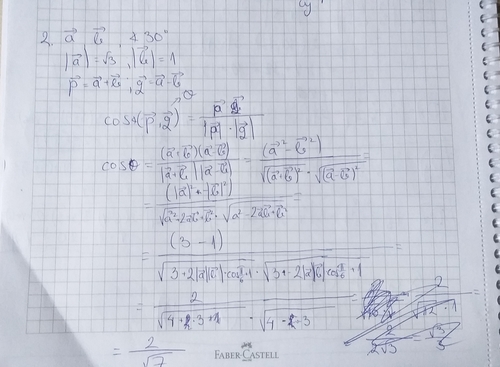 2. a⃗ b⃗, ∡ 30°
|a⃗| = √3, |b⃗| = 1
p⃗ = a⃗ + b⃗, q⃗ = a⃗ - b⃗
θ
cos∡(p⃗, q⃗) = p⃗ q⃗ / |p⃗| · |q⃗|
cosθ = (a⃗+b⃗)(a⃗-b⃗) / |a⃗+b⃗| |a⃗-b⃗| = (a⃗² - b⃗²) / √(a⃗+b⃗)² · √(a⃗-b⃗)² =
= (|a⃗|² - |b⃗|²) / √a⃗²+2a⃗b⃗+b⃗² · √a⃗²-2a⃗b⃗+b⃗²
= (3 - 1) / √3+2|a⃗||b⃗|·cos π/6+1 · √3-2|a⃗||b⃗|cos π/6+1 =
= 2 / √4+2·3+1 · √4-2·3
= 2 / √7
FABER-CASTELL